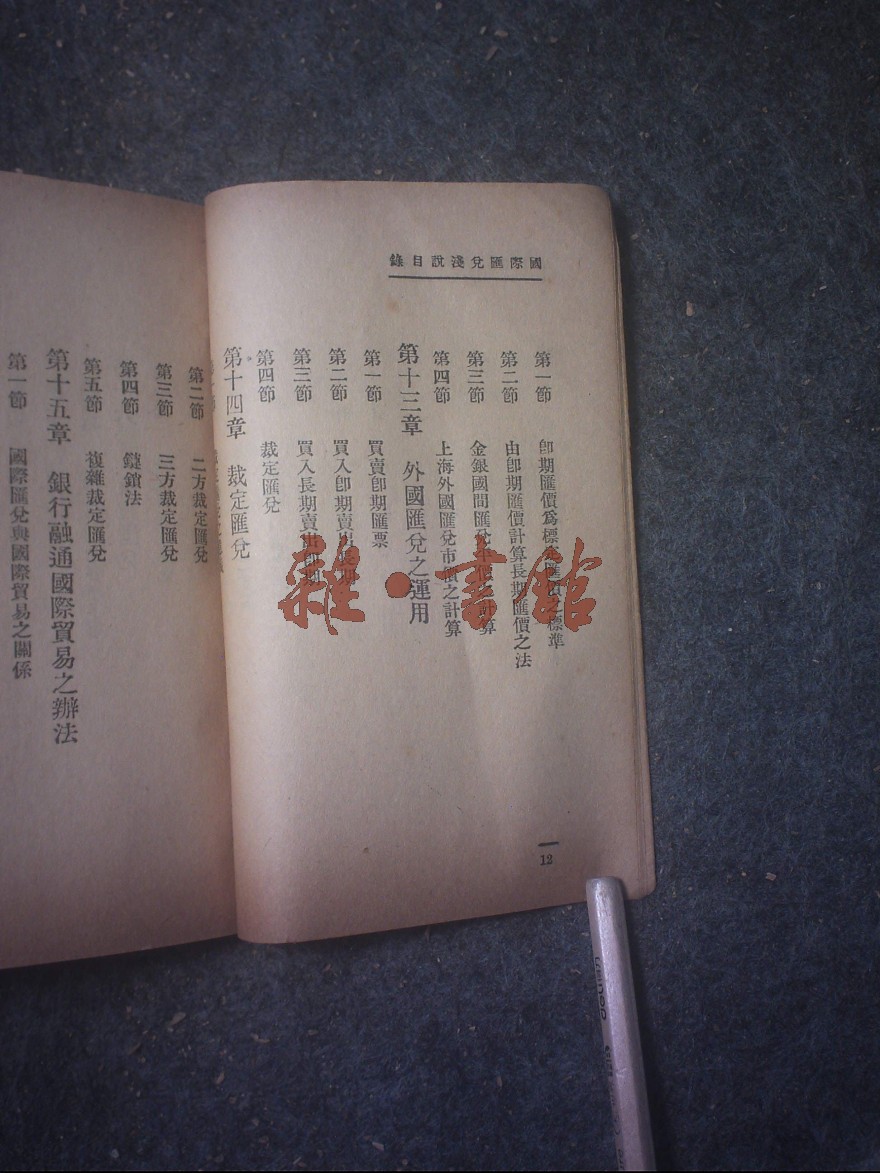 國際匯兌淺說目錄
第一節 卽期匯價爲標定匯價之標準
第二節 由卽期匯價計算長期匯價之法
第三節 金銀國間匯兌平價之計算
第四節 上海外國匯兌市價之計算
第十三章 外國匯兌之運用
第一節 買賣卽期匯票
第二節 買入卽期賣出長期
第三節 買入長期賣出卽期
第四節 裁定匯兌
第十四章 裁定匯兌
12
第二節 二方裁定匯兌
第三節 三方裁定匯兌
第四節 鏈鎖法
第五節 複雜裁定匯兌
第十五章 銀行融通國際貿易之辦法
第一節 國際匯兌與國際貿易之關係
雜·書館